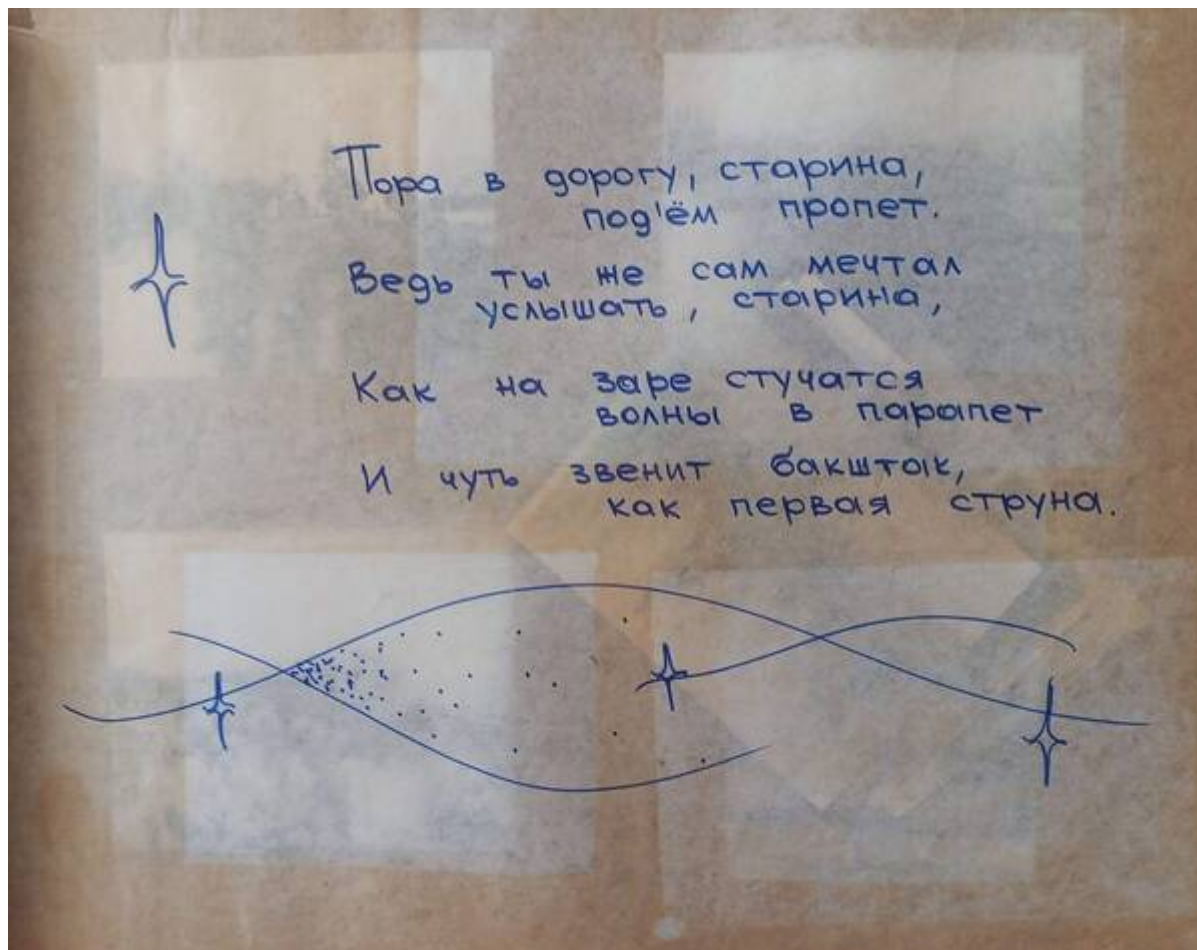 Пора в дорогу, старина,
под'ём пропет.
Ведь ты же сам мечтал
услышать, старина,
Как на заре стучатся
волны в парапет
И чуть звенит бакшток,
как первая струна.